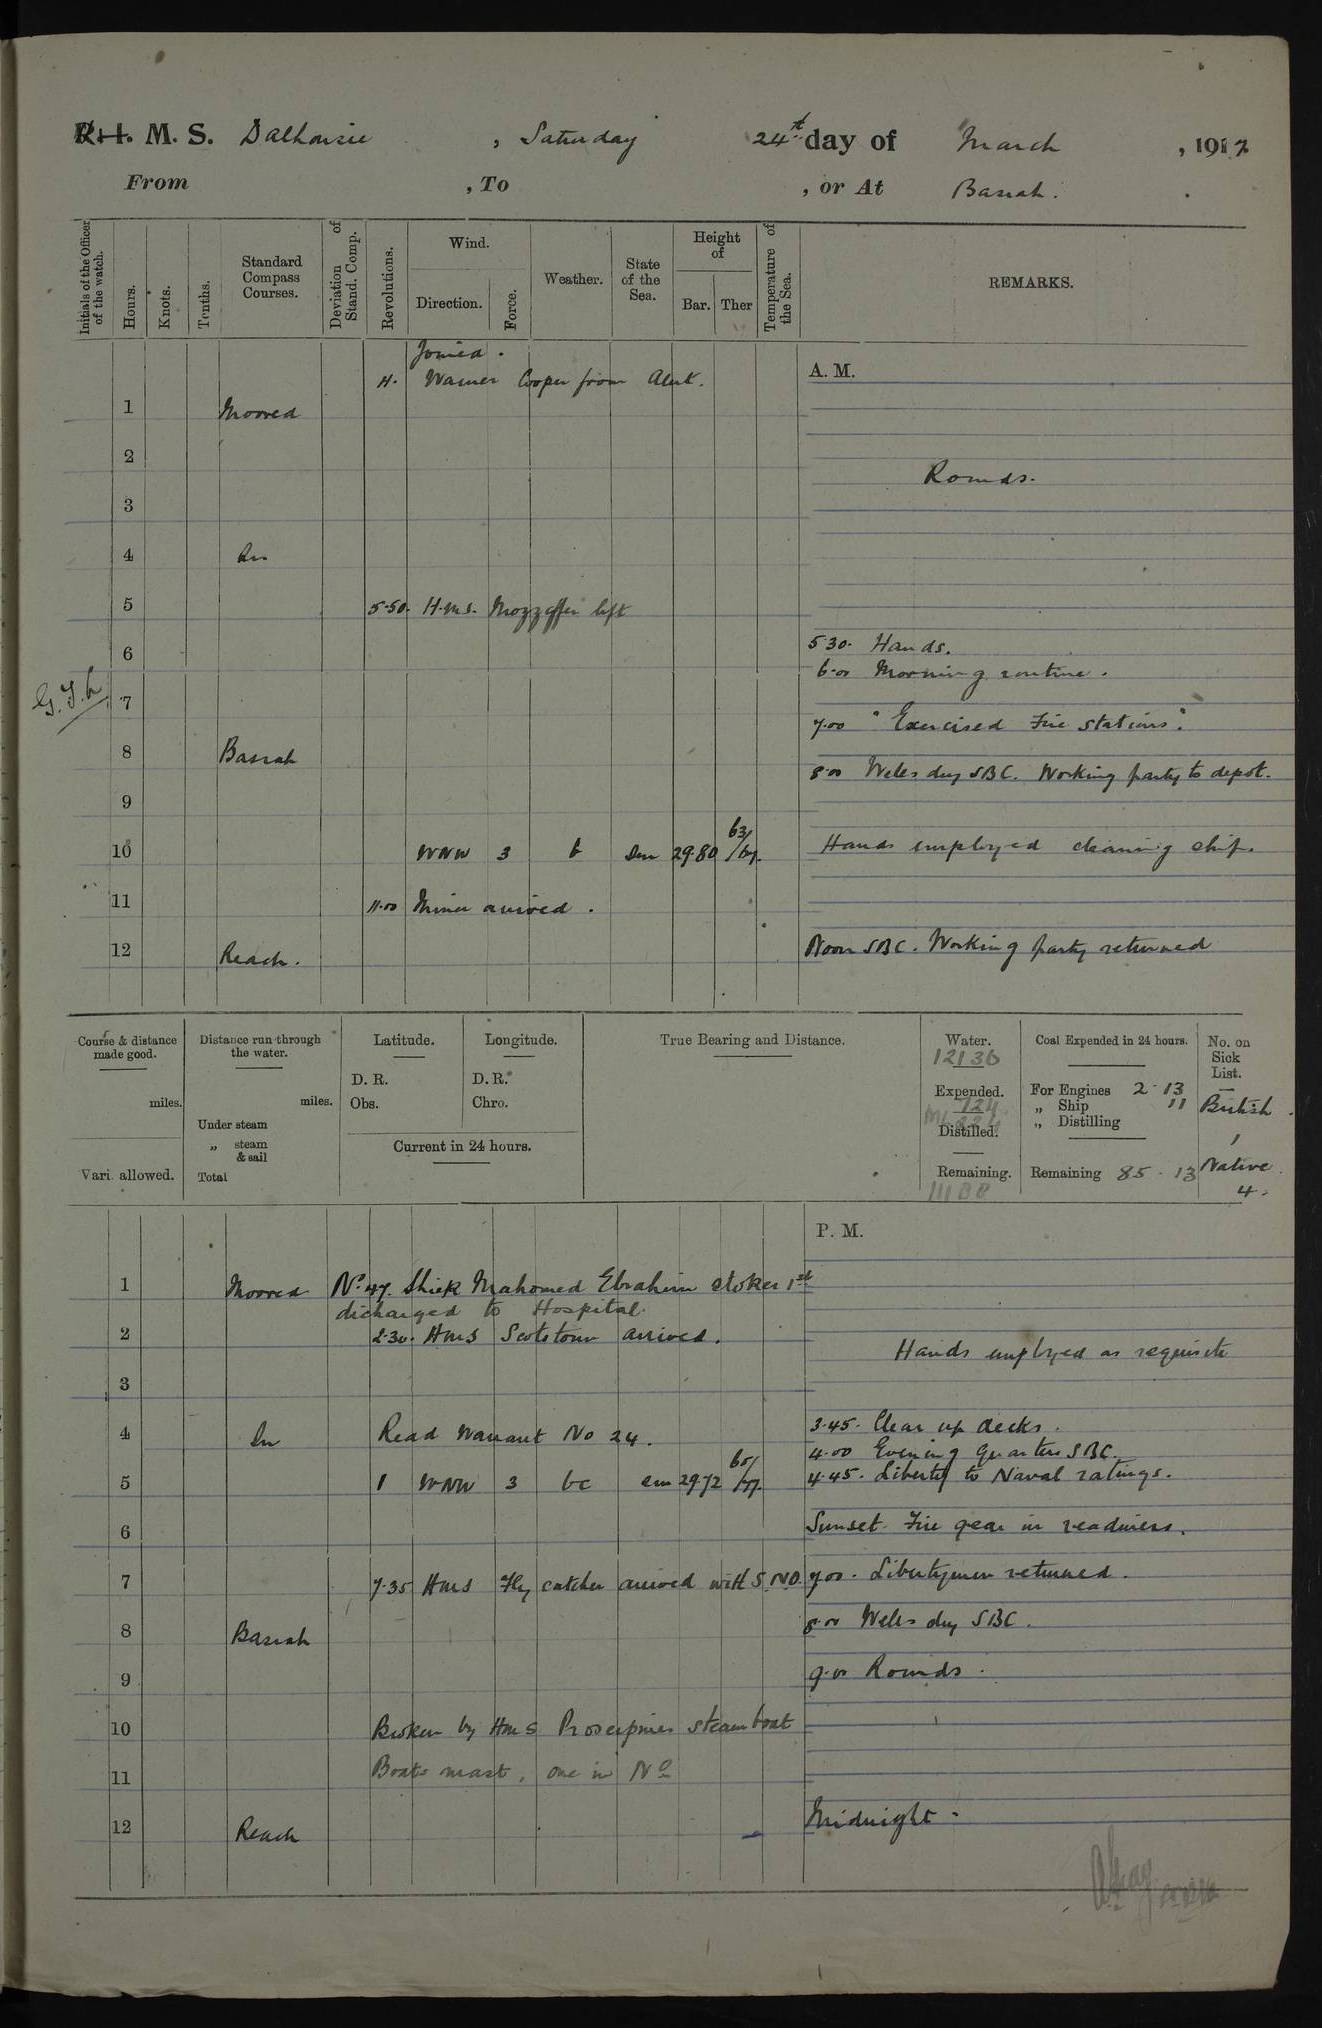 R.I. M. S. Dalhousie , Saturday 24th day of March , 1917
From , To , or At Basrah.
Initials of the Officer of the watch.
Hours.
Knots.
Tenths.
Standard Compass Courses.
Deviation of Stand. Comp.
Revolutions.
Wind.
Direction.
Force.
Weather.
State of the Sea.
Height of
Bar. Ther
Temperature of the Sea.
REMARKS.
Joined.
H. Warner Cooper from Alert.
A. M.
1 Moored
2
Rounds.
3
4 In
5 5.50. H.M.S. Mozzeffer left
5.30. Hands.
6
6.00 Morning routine.
G.T.L.
7
7.00 "Exercised Fire Stations".
8 Basrah
8.00 Wells dry SBC. Working party to depot.
9
10 WNW 3 b Sm 29.80 63/67. Hands employed cleaning ship.
11 11.00 Miner arrived.
12 Reach. Noon SBC. Working party returned
Course & distance made good.
miles.
Vari. allowed.
Distance run through the water.
miles.
Under steam
„ steam & sail
Total
Latitude.
D. R.
Obs.
Longitude.
D. R.
Chro.
Current in 24 hours.
True Bearing and Distance.
Water.
12136
Expended.
724
224
Distilled.
Remaining.
11188
Coal Expended in 24 hours.
For Engines 2 - 13
„ Ship 11
„ Distilling
Remaining 85 - 13
No. on Sick List.
British
1
Native
4.
P. M.
1 Moored No 47. Shiek Mahomed Ebrahim stoker 1st
dicharged to Hospital.
2 2.30. HMS Scotstoun arrived.
Hands employed as requisite
3
3.45. Clear up decks.
4 In Read Warrant No 24.
4.00 Evening Quarters SBC.
5 1 WNW 3 bc sm 29.72 65/77. 4.45. Liberty to Naval ratings.
6 Sunset. Fire gear in readiness.
7 7.35 HMS Fly catcher arrived with S.N.O. 7.00. Libertymen returned.
8 Basrah 8.00 Wells dry SBC.
9 9.00 Rounds.
10 Broken by HMS Proserpines steam boat
11 Boats mast, one in No
12 Reach Midnight -